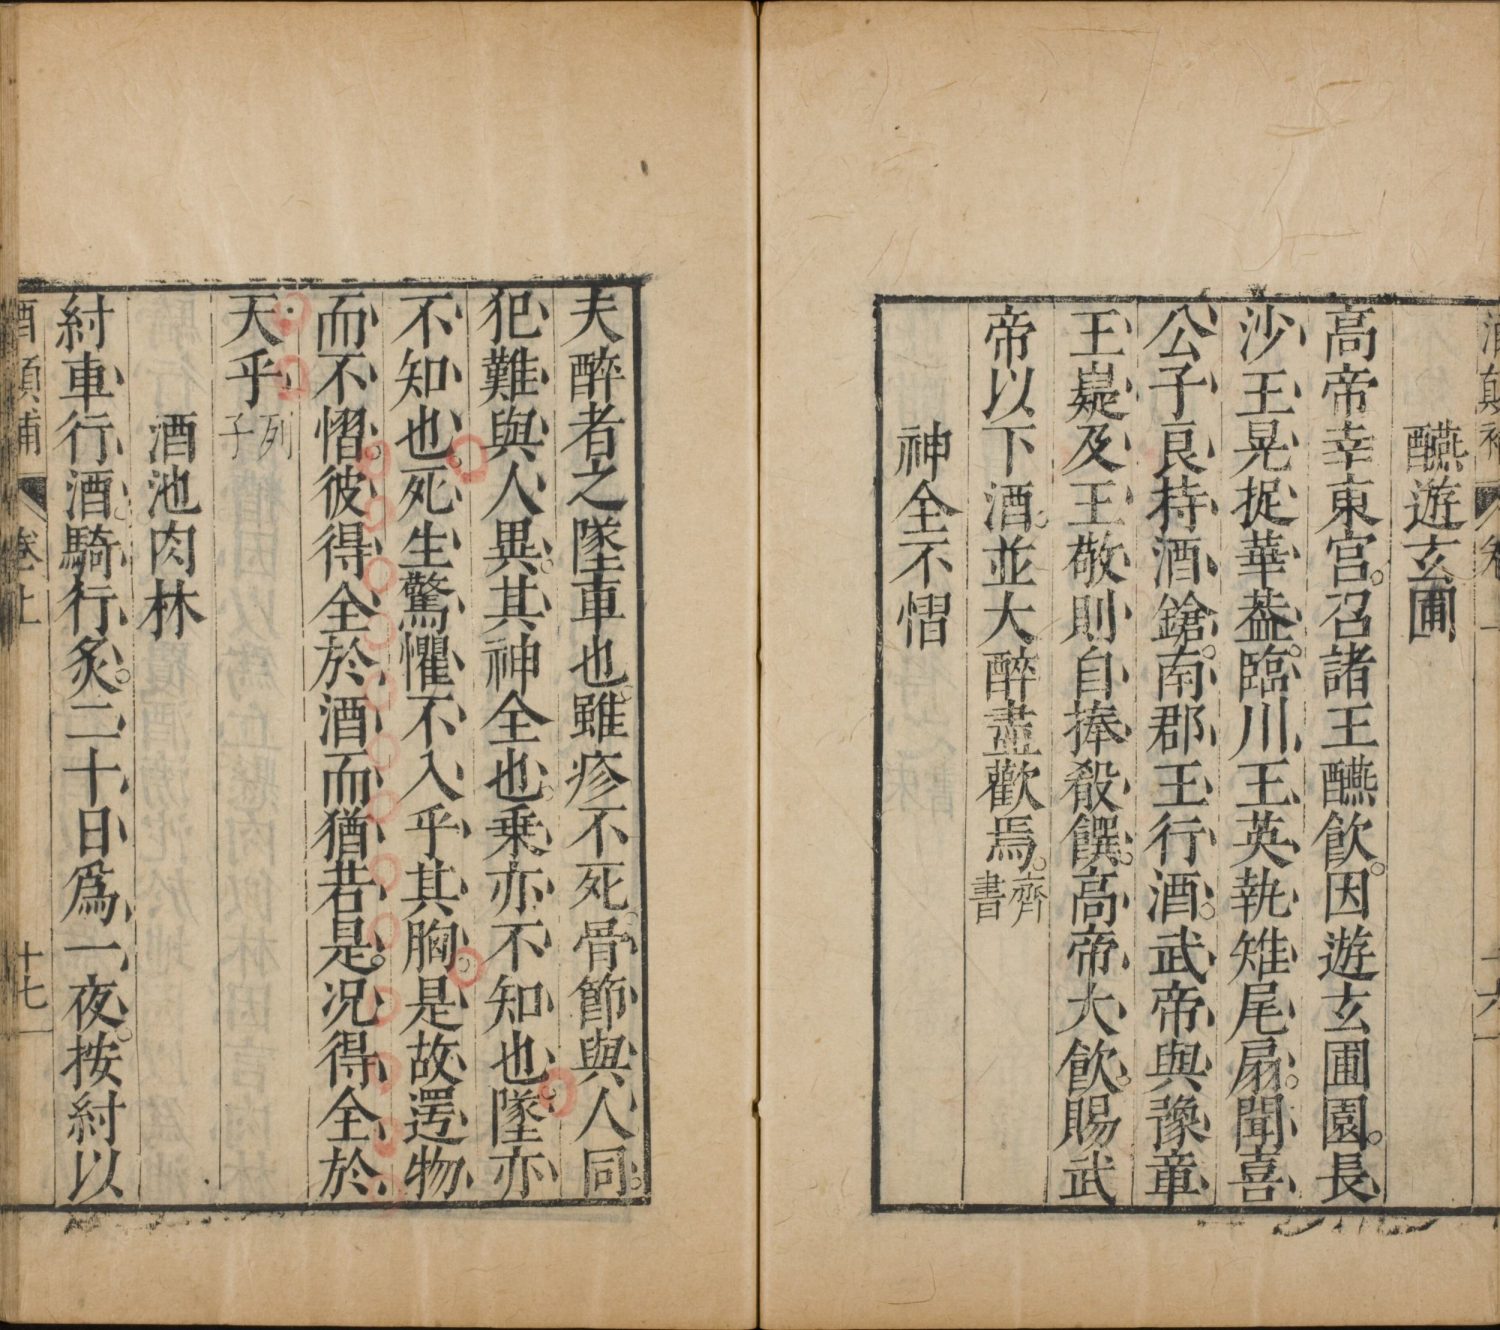 酒顛補 卷上 十六
醼遊玄圃
高帝幸東宫。召諸王醼飲。因遊玄圃園。長
沙王晃捉華葢。臨川王英執雉尾扇。聞喜
公子良持酒鎗。南郡王行酒。武帝與豫章
王嶷及王敬則自捧殽饌。高帝大飲。賜武
帝以下酒。並大醉盡歡焉。齊書
神全不慴
夫醉者之墜車也。雖疹不死。骨節與人同。
犯難與人異。其神全也。乗亦不知也。墜亦
不知也。死生驚懼不入乎其胸。是故遌物
而不慴。彼得全於酒而猶若是。况得全於
天乎列子
酒池肉林
紂車行酒。騎行炙。二十日爲一夜。按紂以
酒顛補 卷上 十七